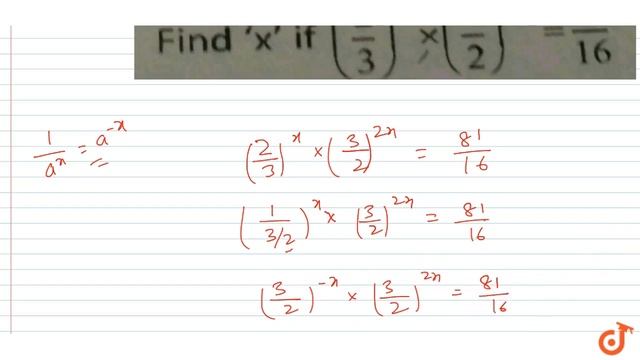 Find 'x' if (–/3) × (–/2) = –/16
1/aⁿ = a⁻ˣ
(2/3)ˣ × (3/2)²ˣ = 81/16
(1/(3/2))ˣ × (3/2)²ˣ = 81/16
(3/2)⁻ˣ × (3/2)²ˣ = 81/16